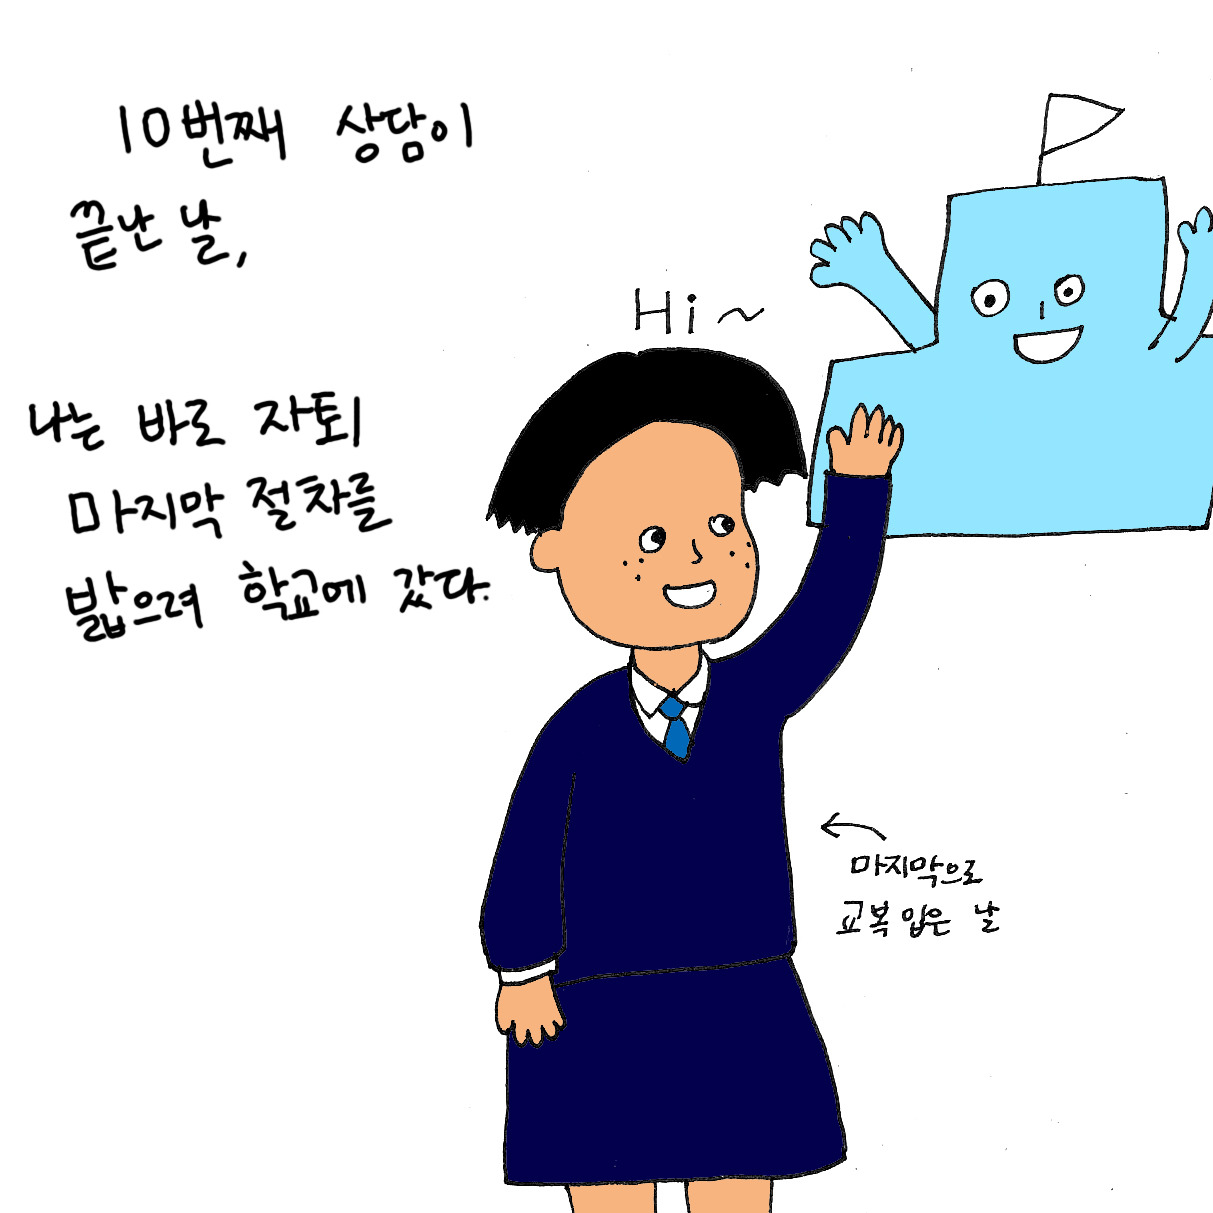 10번째 상담이
끝난 날,
나는 바로 자퇴
마지막 절차를
밟으려 학교에 갔다.
Hi ~
마지막으로
교복 입은 날